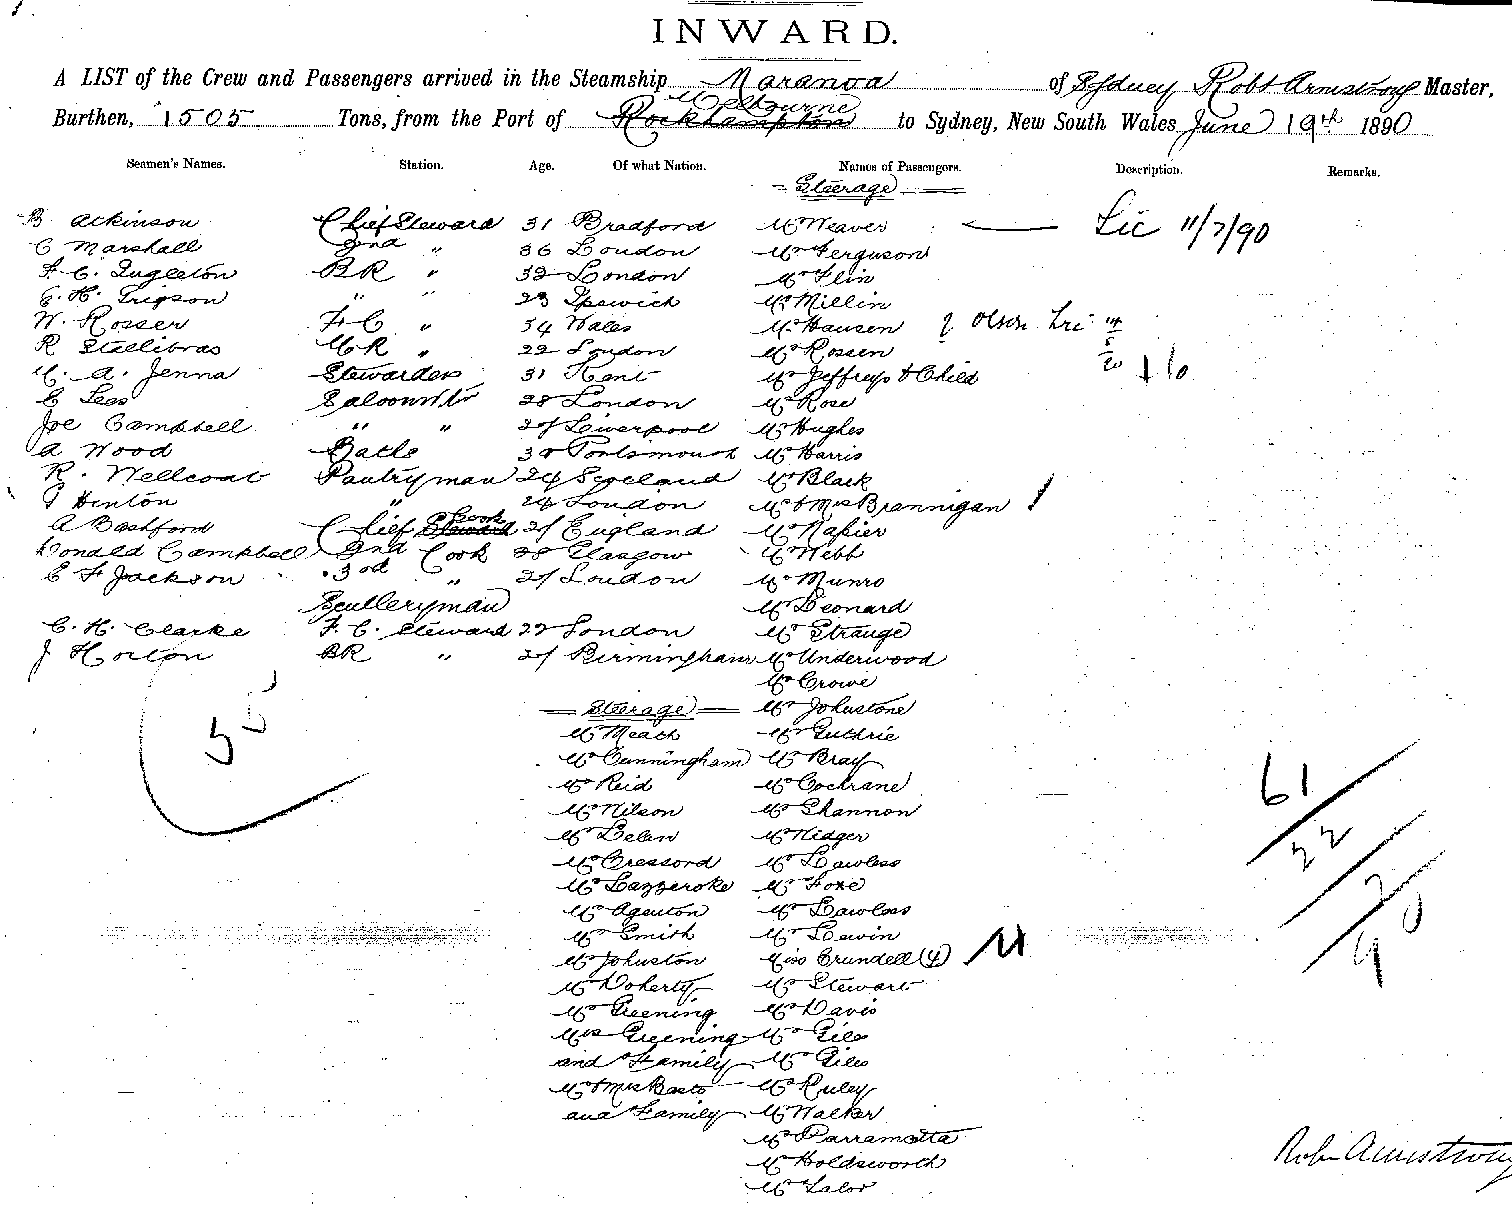 INWARD.
A LIST of the Crew and Passengers arrived in the Steamship Maranoa of Sydney Robt Armstrong Master,
Melbourne
Burthen, 1505 Tons, from the Port of Rockhampton to Sydney, New South Wales June 19th 1890
Seamen's Names. Station. Age. Of what Nation. Names of Passengers. Description. Remarks.
Steerage
B Atkinson Chief Steward 31 Bradford Mr Weaver Lic 11/7/90
C Marshall 2nd " 36 London Mr Ferguson
F. C. Ingleton BR " 32 London Mr Flin
G. H. Grigson " " 23 Ipswich Mr Millin
W. Rosser FC " 34 Wales Mr Hansen Olson Lic
R Stallibras MR " 22 London Mr Rossen
M. A. Jenna Stewardess 31 Kent Mr Jeffreys & Child
C Lees 28 London Mr Rose
Joe Campbell " " 27 Liverpool Mr Hughes
A Wood 30 Portsmouth Mr Harris
R. Wellcoat Pantryman 24 Scotland Mr Black
G Henton " 24 London Mr & Mrs Brannigan 1
Cook
A Bashford Chief Steward 27 England Mr Napier
Donald Campbell 2nd Cook 28 Glasgow Mr Webb
C F Jackson 3rd " 27 London Mr Munro
Sculleryman Mr Leonard
C. H. Clarke F. C. Steward 22 London Mr Strange
J Horton BR " 27 Birmingham Mr Underwood
Mr Crowe
Steerage Mr Johnstone
Mr Meach Mr Guthrie
Mr Cunningham Mr Bray
Mr Reid Mr Cochrane
Mr Nilson Mr Shannon
Mr Lelan Mr Nidger
Mr Cressord Mr Lawless
Mr Lazzeroke Mr Foxe
Mr Agenton Mr Lawless
Mr Smith Mr Lewin
Mr Johnston Miss Crundell (4)
Mr Doherty Mr Stewart
Mr Greening Mr Davis
Mrs Greening Mr Giles
and Family Mr Giles
Mr & Mrs Basto Mr Ruley
and Family Mr Walker
Mr Parramatta
Mr Holdsworth
Mr Lalor
55
61
22
Robt Armstrong